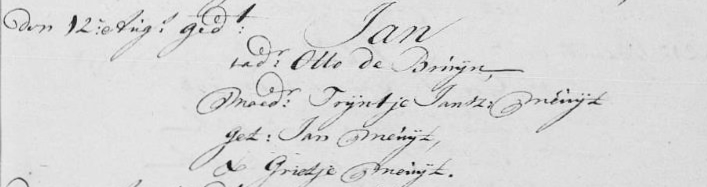 Den 12: Aug: ged.t: Jan
vad.r Otto de Bruijn,
Moed.r Trijntje Jansz: Meuijt
get: Jan Meuijt,
& Grietje Meuijt.